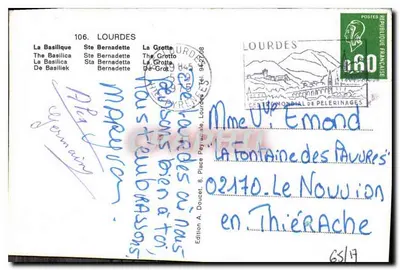 106. LOURDES
La Basilique Ste Bernadette La Grotte
The Basilica Ste Bernadette The Grotto
La Basilica Sta Bernadetta La Grotta
De Basiliek De Grot
Lourdes où nous
pensons bien à toi,
nous t'embrassons.
Edition A. Doucet, 8, Place Peyramale, Lourdes
LOURDES
CENTRE MONDIAL DE PÈLERINAGES
POSTES
0,60
REPUBLIQUE FRANÇAISE
Mme Vve Emond
"La Fontaine des Pauvres"
02170. Le Nouvion
en Thiérache
65/17